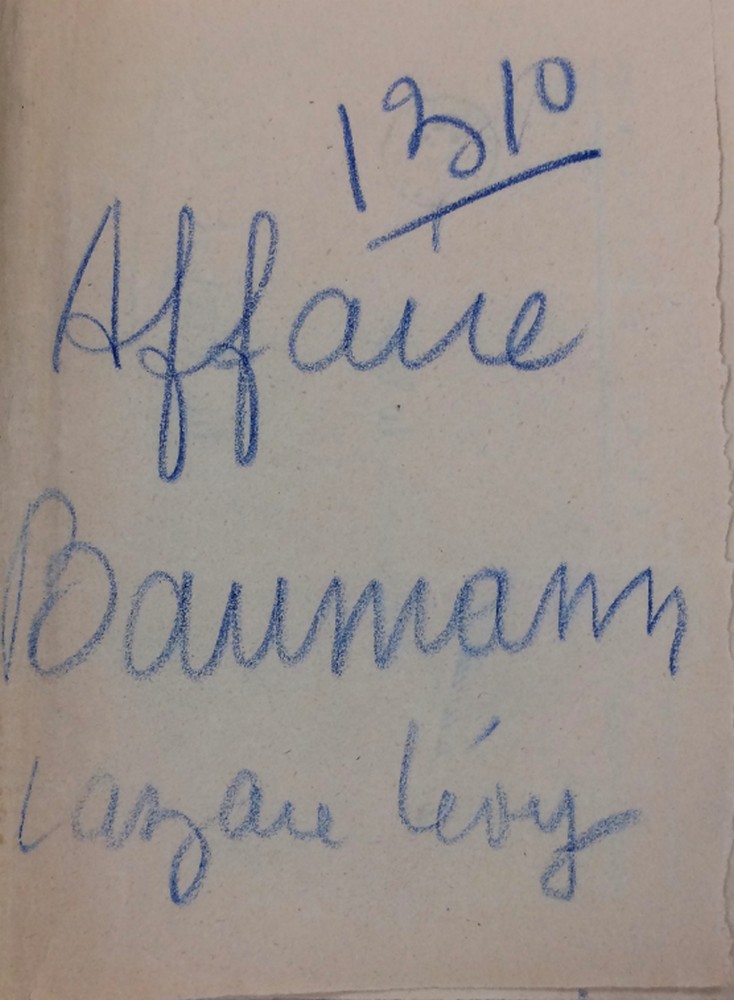 1310
Affaire
Baumann
Lazare Lévy